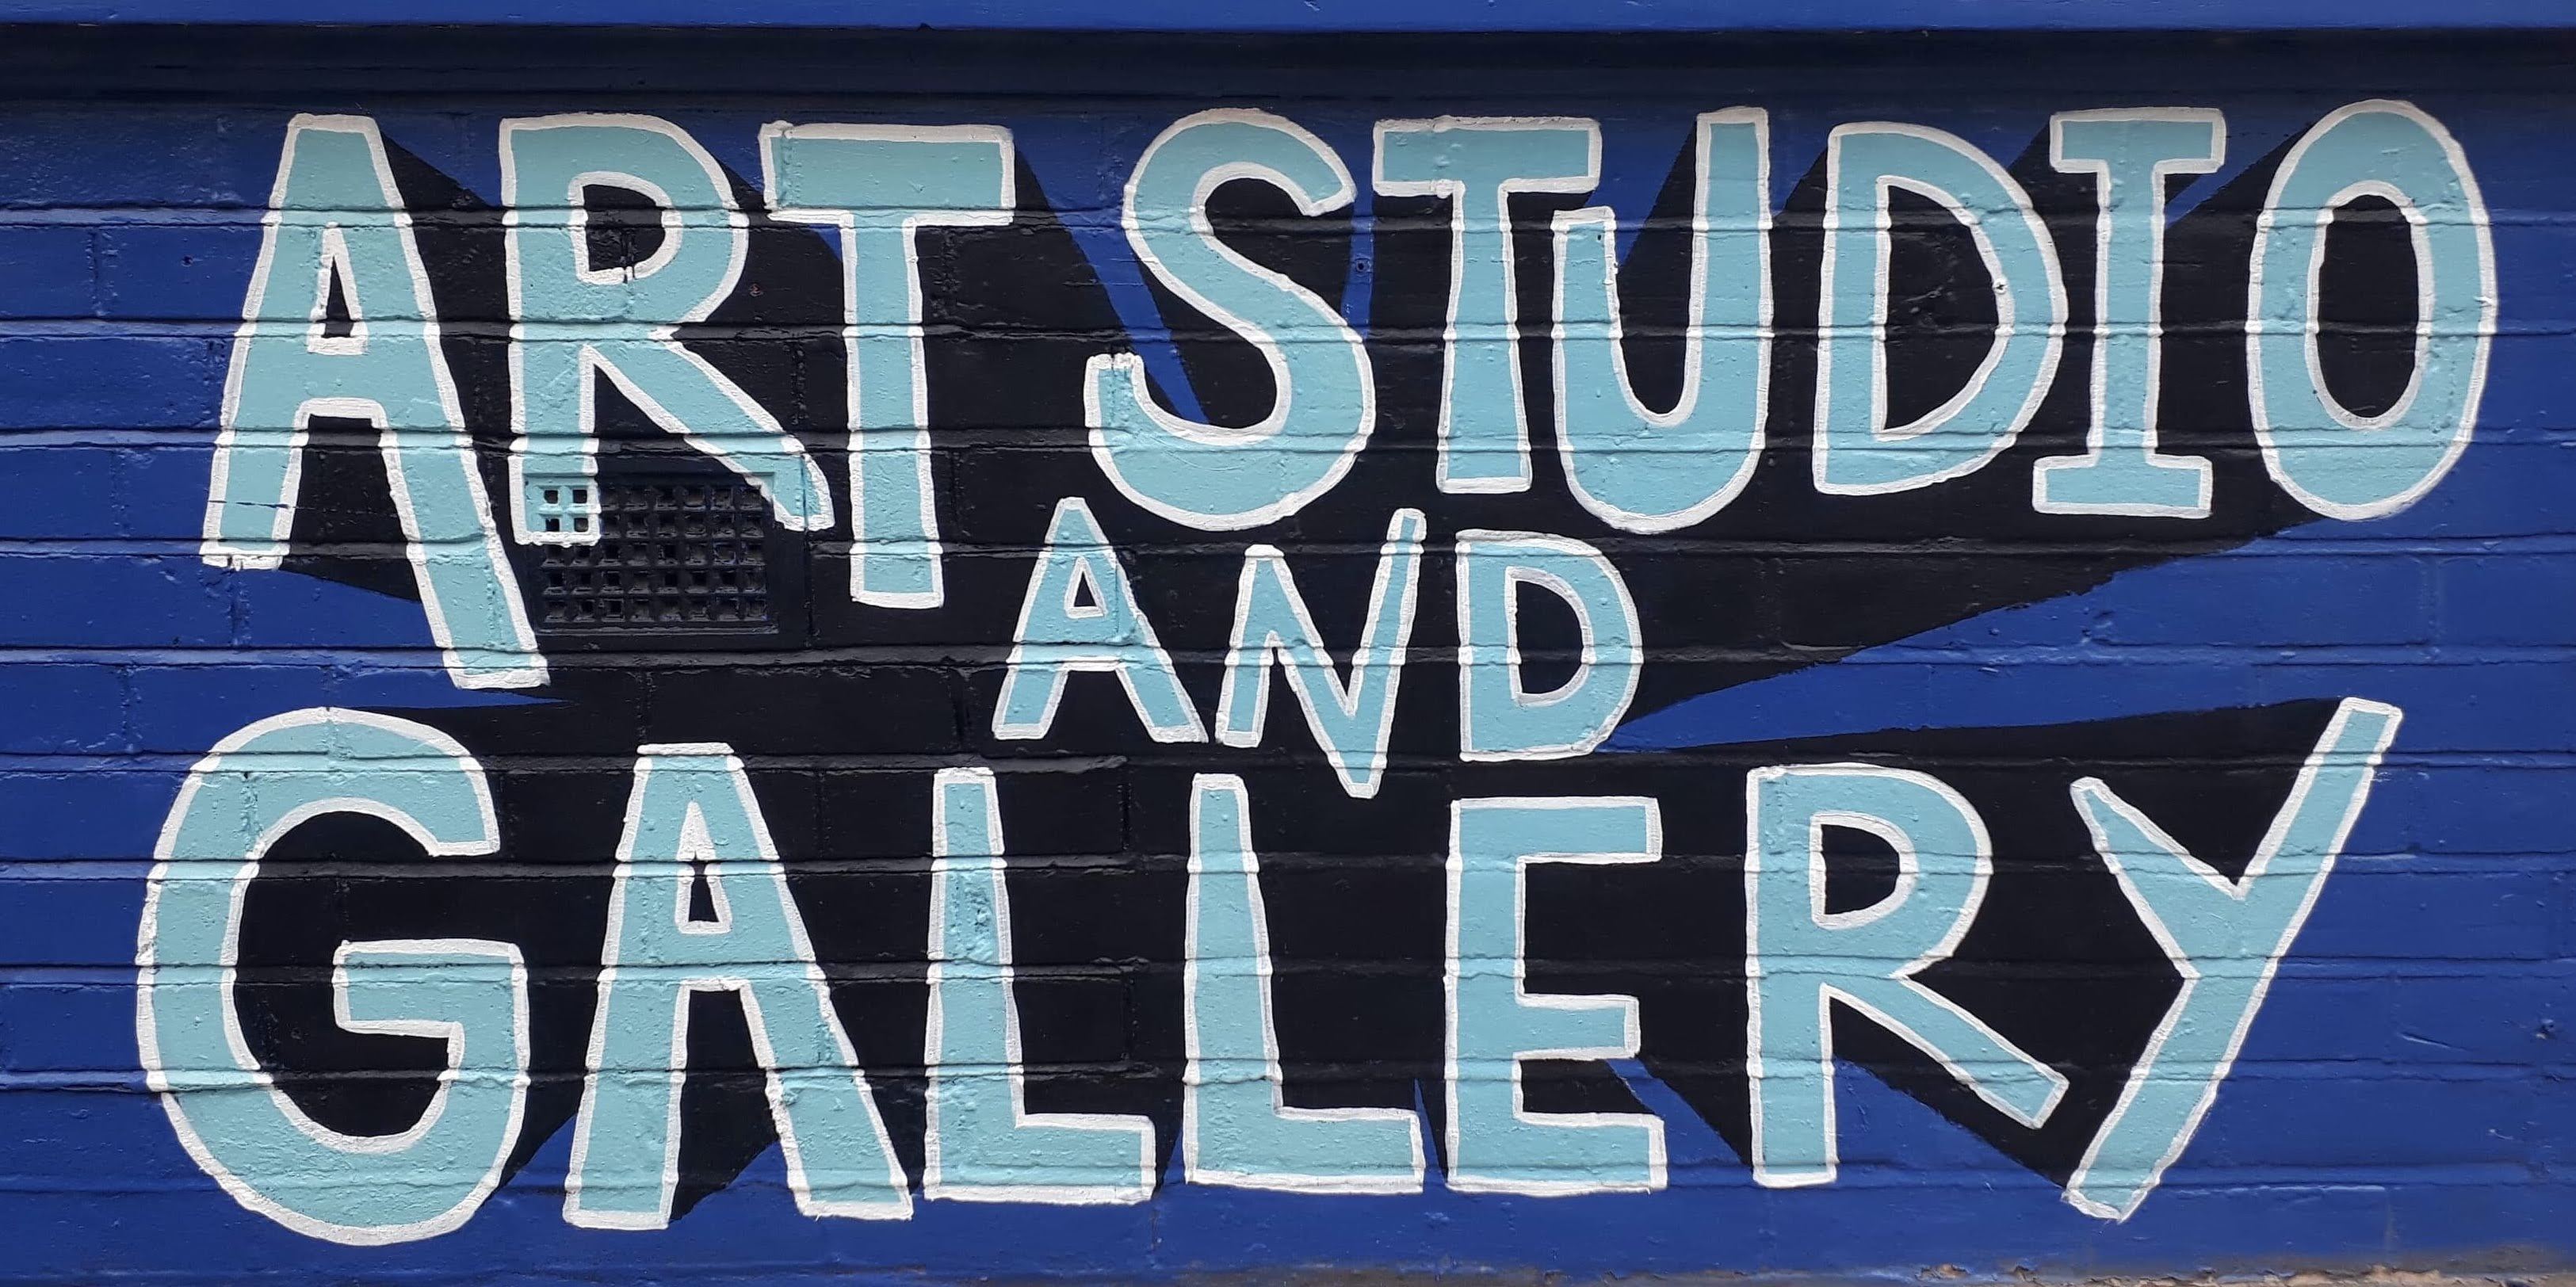 ART STUDIO
AND
GALLERY